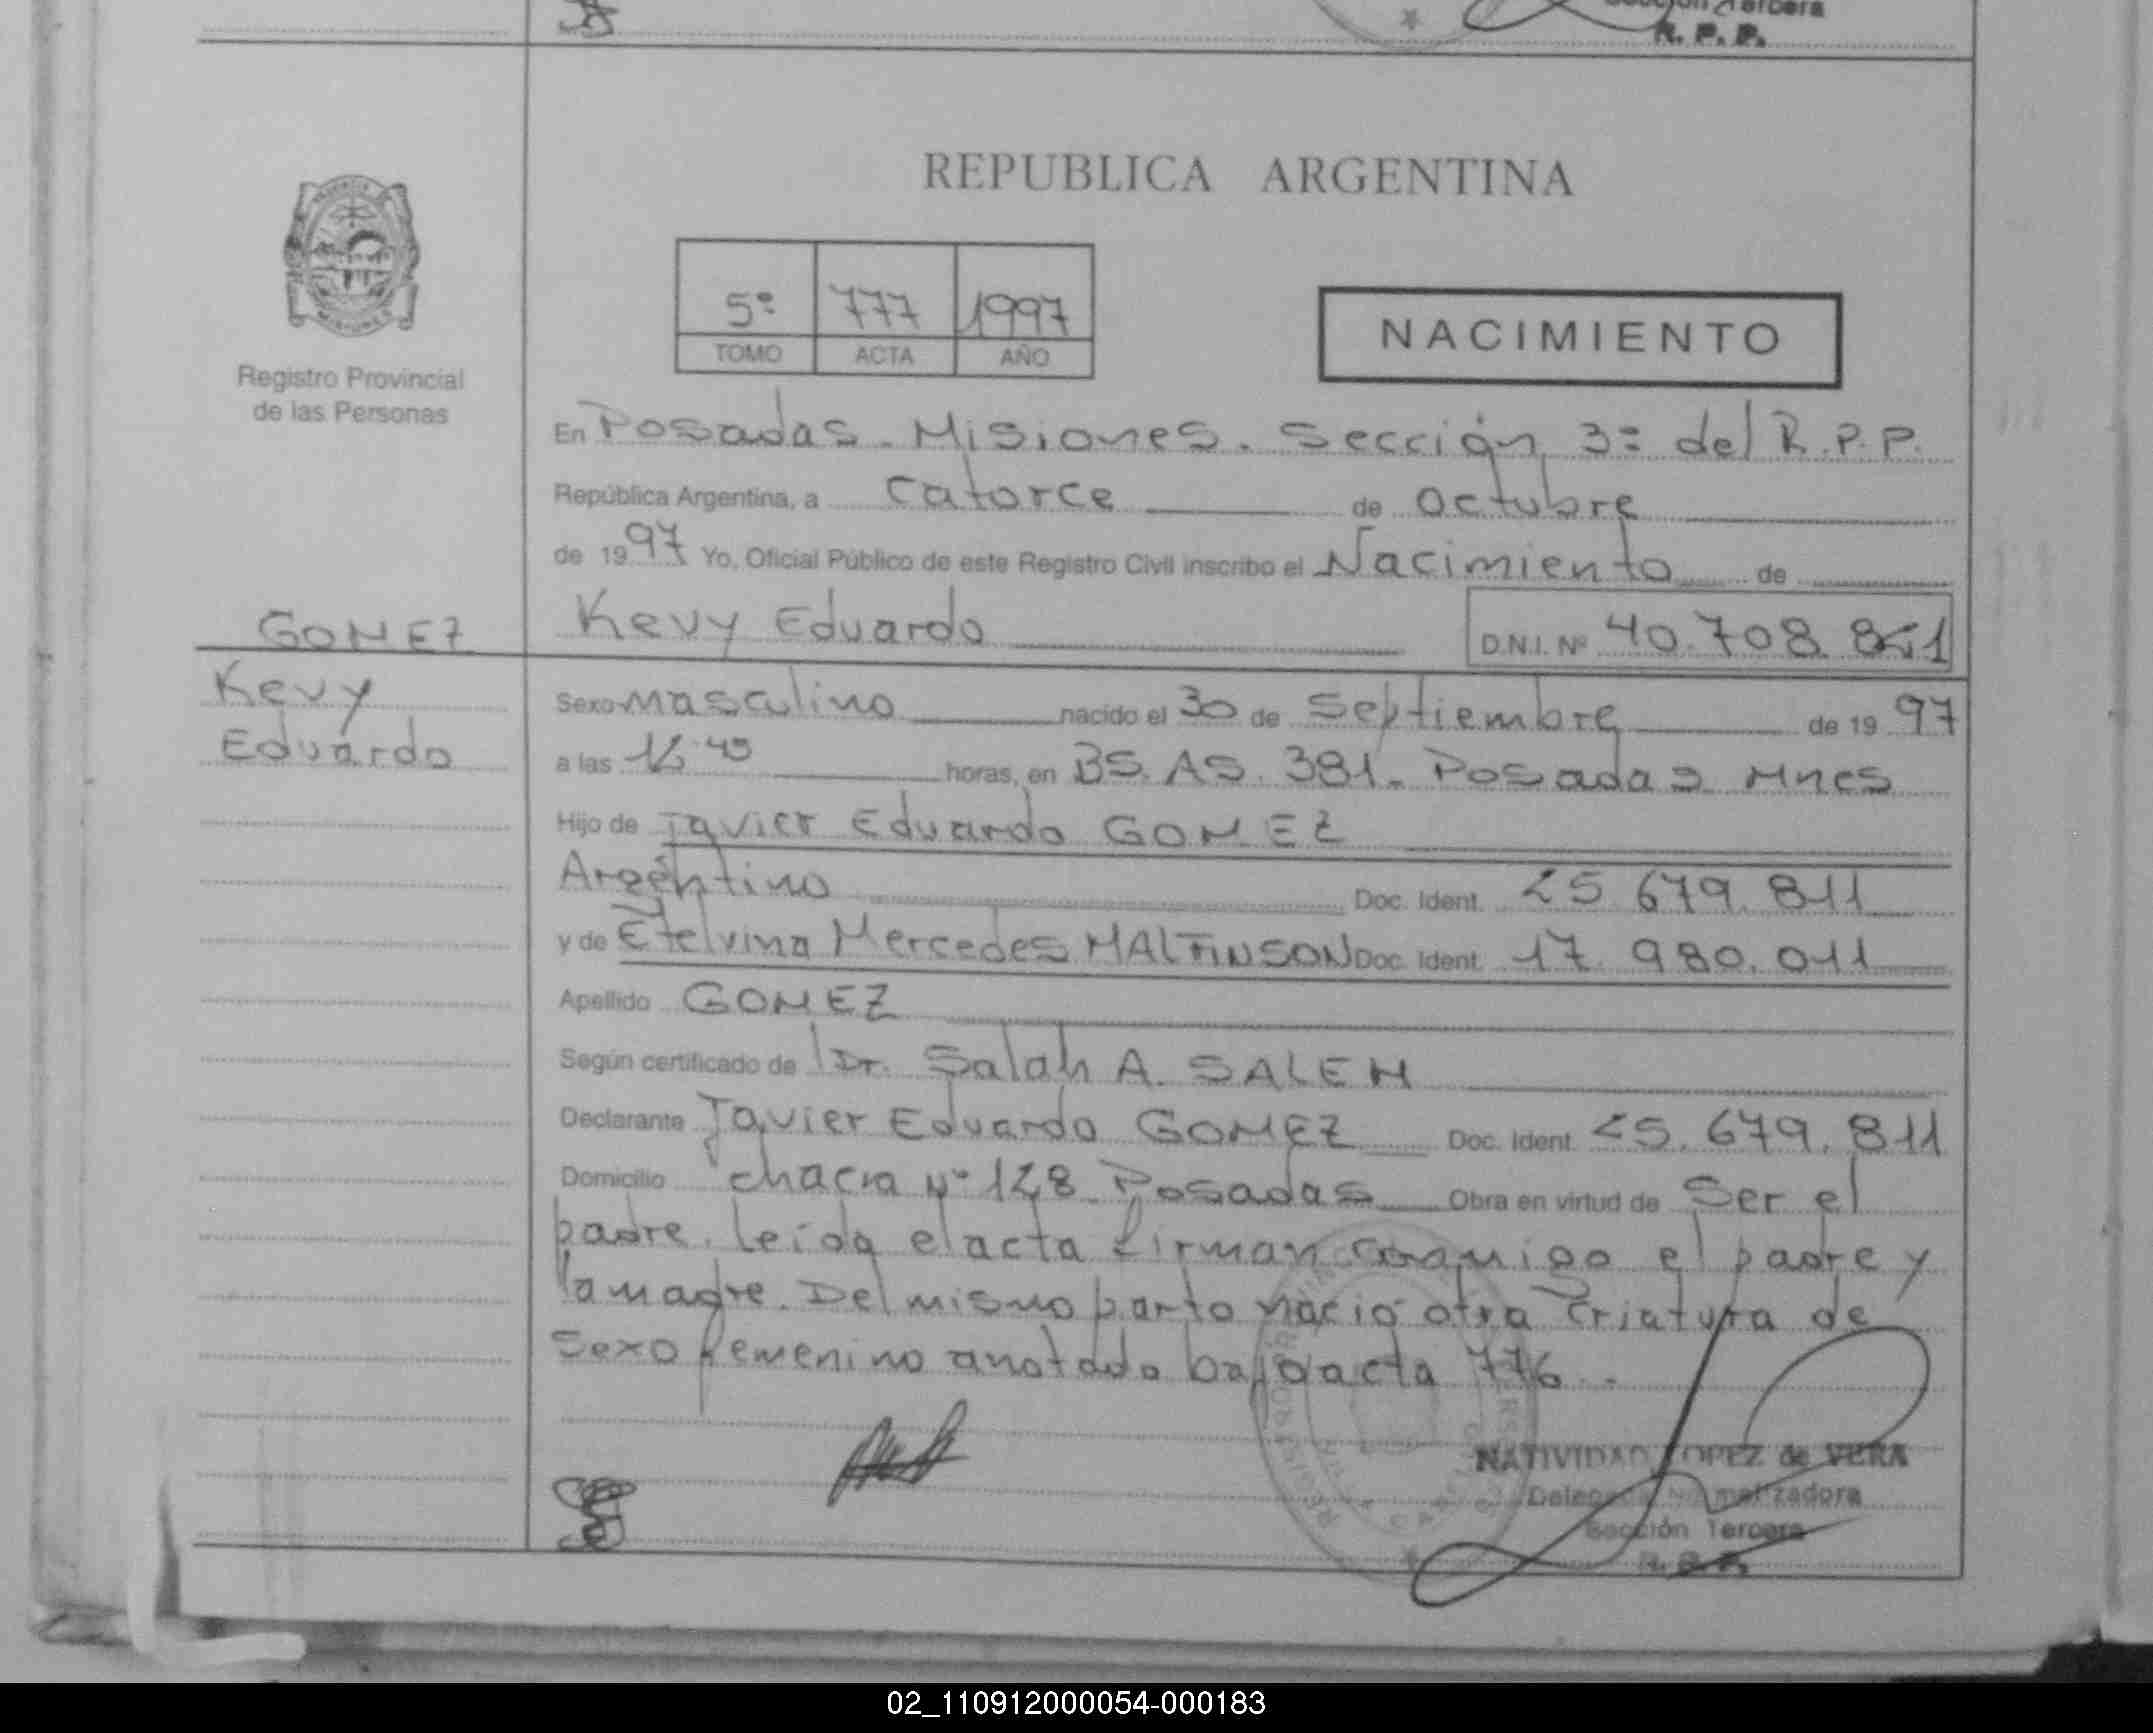 Sección Tercera
R. P. P.
REPUBLICA ARGENTINA
5º 777 1997
TOMO ACTA AÑO
NACIMIENTO
Registro Provincial
de las Personas
En Posadas. Misiones. Sección 3º del R.P.P.
República Argentina, a catorce de octubre
de 1997 Yo, Oficial Público de este Registro Civil inscribo el Nacimiento de
GOMEZ Kevy Eduardo D.N.I. Nº 40.708.851
Kevy Sexo masculino nacido el 30 de Septiembre de 1997
Eduardo a las horas, en BS. AS. 381. Posadas Mnes
Hijo de Javier Eduardo GOMEZ
Argentino Doc. Ident. 25.679.811
y de Etelvina Mercedes MALTINSON Doc. Ident. 17.980.011
Apellido GOMEZ
Según certificado de Dr. Salah A. SALEH
Declarante Javier Eduardo GOMEZ Doc. Ident. 25.679.811
Domicilio chacra Nº 128 Posadas Obra en virtud de Ser el
padre. Leída el acta firman conmigo el padre y
la madre. Del mismo parto nació otra criatura de
sexo femenino anotada bajo acta 776.
NATIVIDAD LOPEZ de VERA
Delegada Normalizadora
Sección Tercera
R. P. P.
02_110912000054-000183